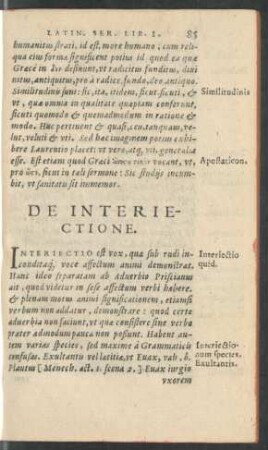 LATIN. SER. LIB. I. 85
humanitus grati. id est, more humano; cum reli-
qua eius forma significent potius id quod ea quæ
Græcè in
desinunt, vt radicitus funditus, diui
nitus, antiquitus, pro à radice, fundo, deo antiquo.
Similitudinis sunt: sic, ita, itidem, sicut, sicuti, &
Similitudinis
vt, quæ omnia in qualitate quapiam conferunt,
sicuti quomodo & quemadmodum in ratione &
modo. Huc pertinent & quasi, ceu, tanquam, ve-
lut, veluti & vti. Sed hæc imaginem potius exhi-
bere Laurentio placet: vt vero, atq, vti, genetulæ
esse. Est etiam quod Græci
vocant, vt,
Apostaticon.
pro
sicut in tali sermone: Sic studijs incum-
bit, vt sanitatis sit immemor.
DE INTERIE-
CTIONE.
INTERIECTIO est vox, quæ sub rudi in-
Interiectio
conditaq, voce affectum animi demonstrat.
quid.
Hanc ideo separatam ab aduerbio Priscianus
ait, quod videtur in sese affectum verbi habere,
& plenam motus animi significationem, etiamsi
verbum non addatur, demonstrare: quod certè
aduerbia non faciunt, vt quæ consistere sine verbo
præter admodum pauca non possunt. Habent au-
tem varias species, sed maximè à Grammaticis
Interiectio-
num species.
confusas. Exultantis vel lætitiæ, vt Euax, vah,
Exultantis.
Plautus [Menech. act. 1. scena 2.] Euax iurgio
vxorem